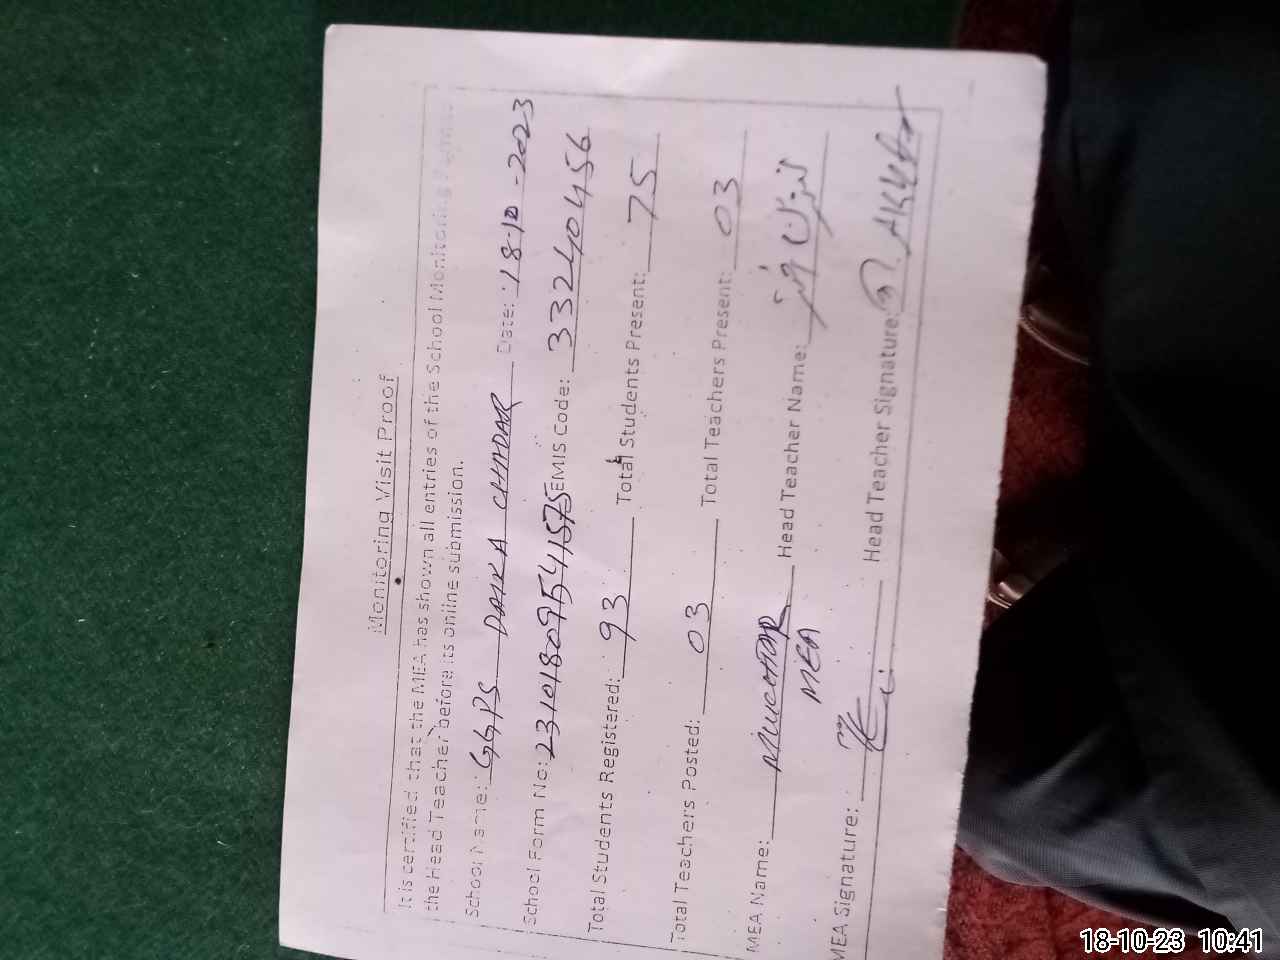 Monitoring Visit Proof
It is certified that the MEA has shown all entries of the School Monitoring Performa
the Head Teacher before its online submission.
School Name: GGPS DAIKA CHADAR Date: 18-10-2023
School Form No: 23101809541575 EMIS Code: 33240456
Total Students Registered: 93 Total Students Present: 75
Total Teachers Posted: 03 Total Teachers Present: 03
MEA Name: Head Teacher Name:
MEA
MEA Signature: Head Teacher Signature:
18-10-23 10:41